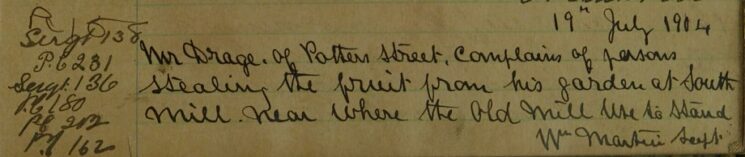 19th July 1904
Sergt 138
P.C 231
Sergt. 136
P.C 180
P.C 202
P.C 162
Mr Drage. of Potters Street. Complains of persons
stealing the fruit from his garden at South
Mill. near where the Old Mill Use to Stand
Wm Martin Supt